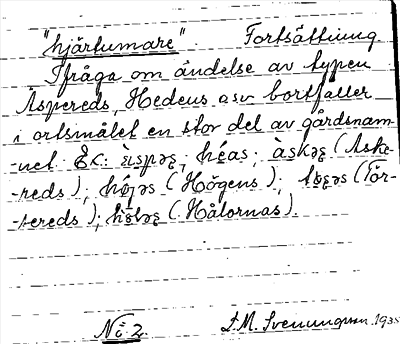 "hjärtumare". Fortsättning.
Ifråga om ändelse av typen
Aspereds, Hedens osv bortfaller
i ortsmålet en stor del av gårdsnam-
-net. Ex: èıspəʒ, héas; àskəʒ (Aske-
-reds); hǿjəs (Högens); tøʒəs (Tör-
-tereds); hŏləʒ (Hålornas).
No 2. D.M. Svenungsson. 1935